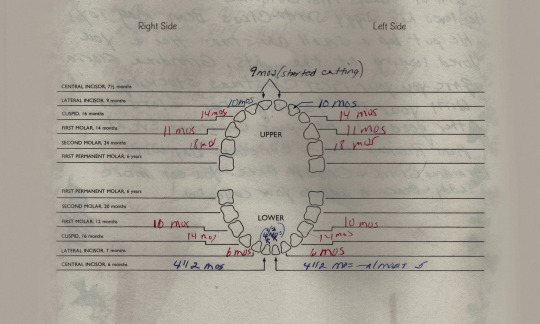 Right Side Left Side
9 mos (started cutting)
CENTRAL INCISOR, 7½ months
LATERAL INCISOR, 9 months 10 mos 10 mos
CUSPID, 16 months 14 mos 14 mos
FIRST MOLAR, 14 months 11 mos UPPER 11 mos
SECOND MOLAR, 24 months 18 mos 18 mos
FIRST PERMANENT MOLAR, 6 years
FIRST PERMANENT MOLAR, 6 years
SECOND MOLAR, 20 months
FIRST MOLAR, 12 months 10 mos LOWER 10 mos
CUSPID, 16 months 14 mos mos
LATERAL INCISOR, 7 months 6 mos 6 mos
CENTRAL INCISOR, 6 months 4 1/2 mos 4 1/2 mos - almost 5